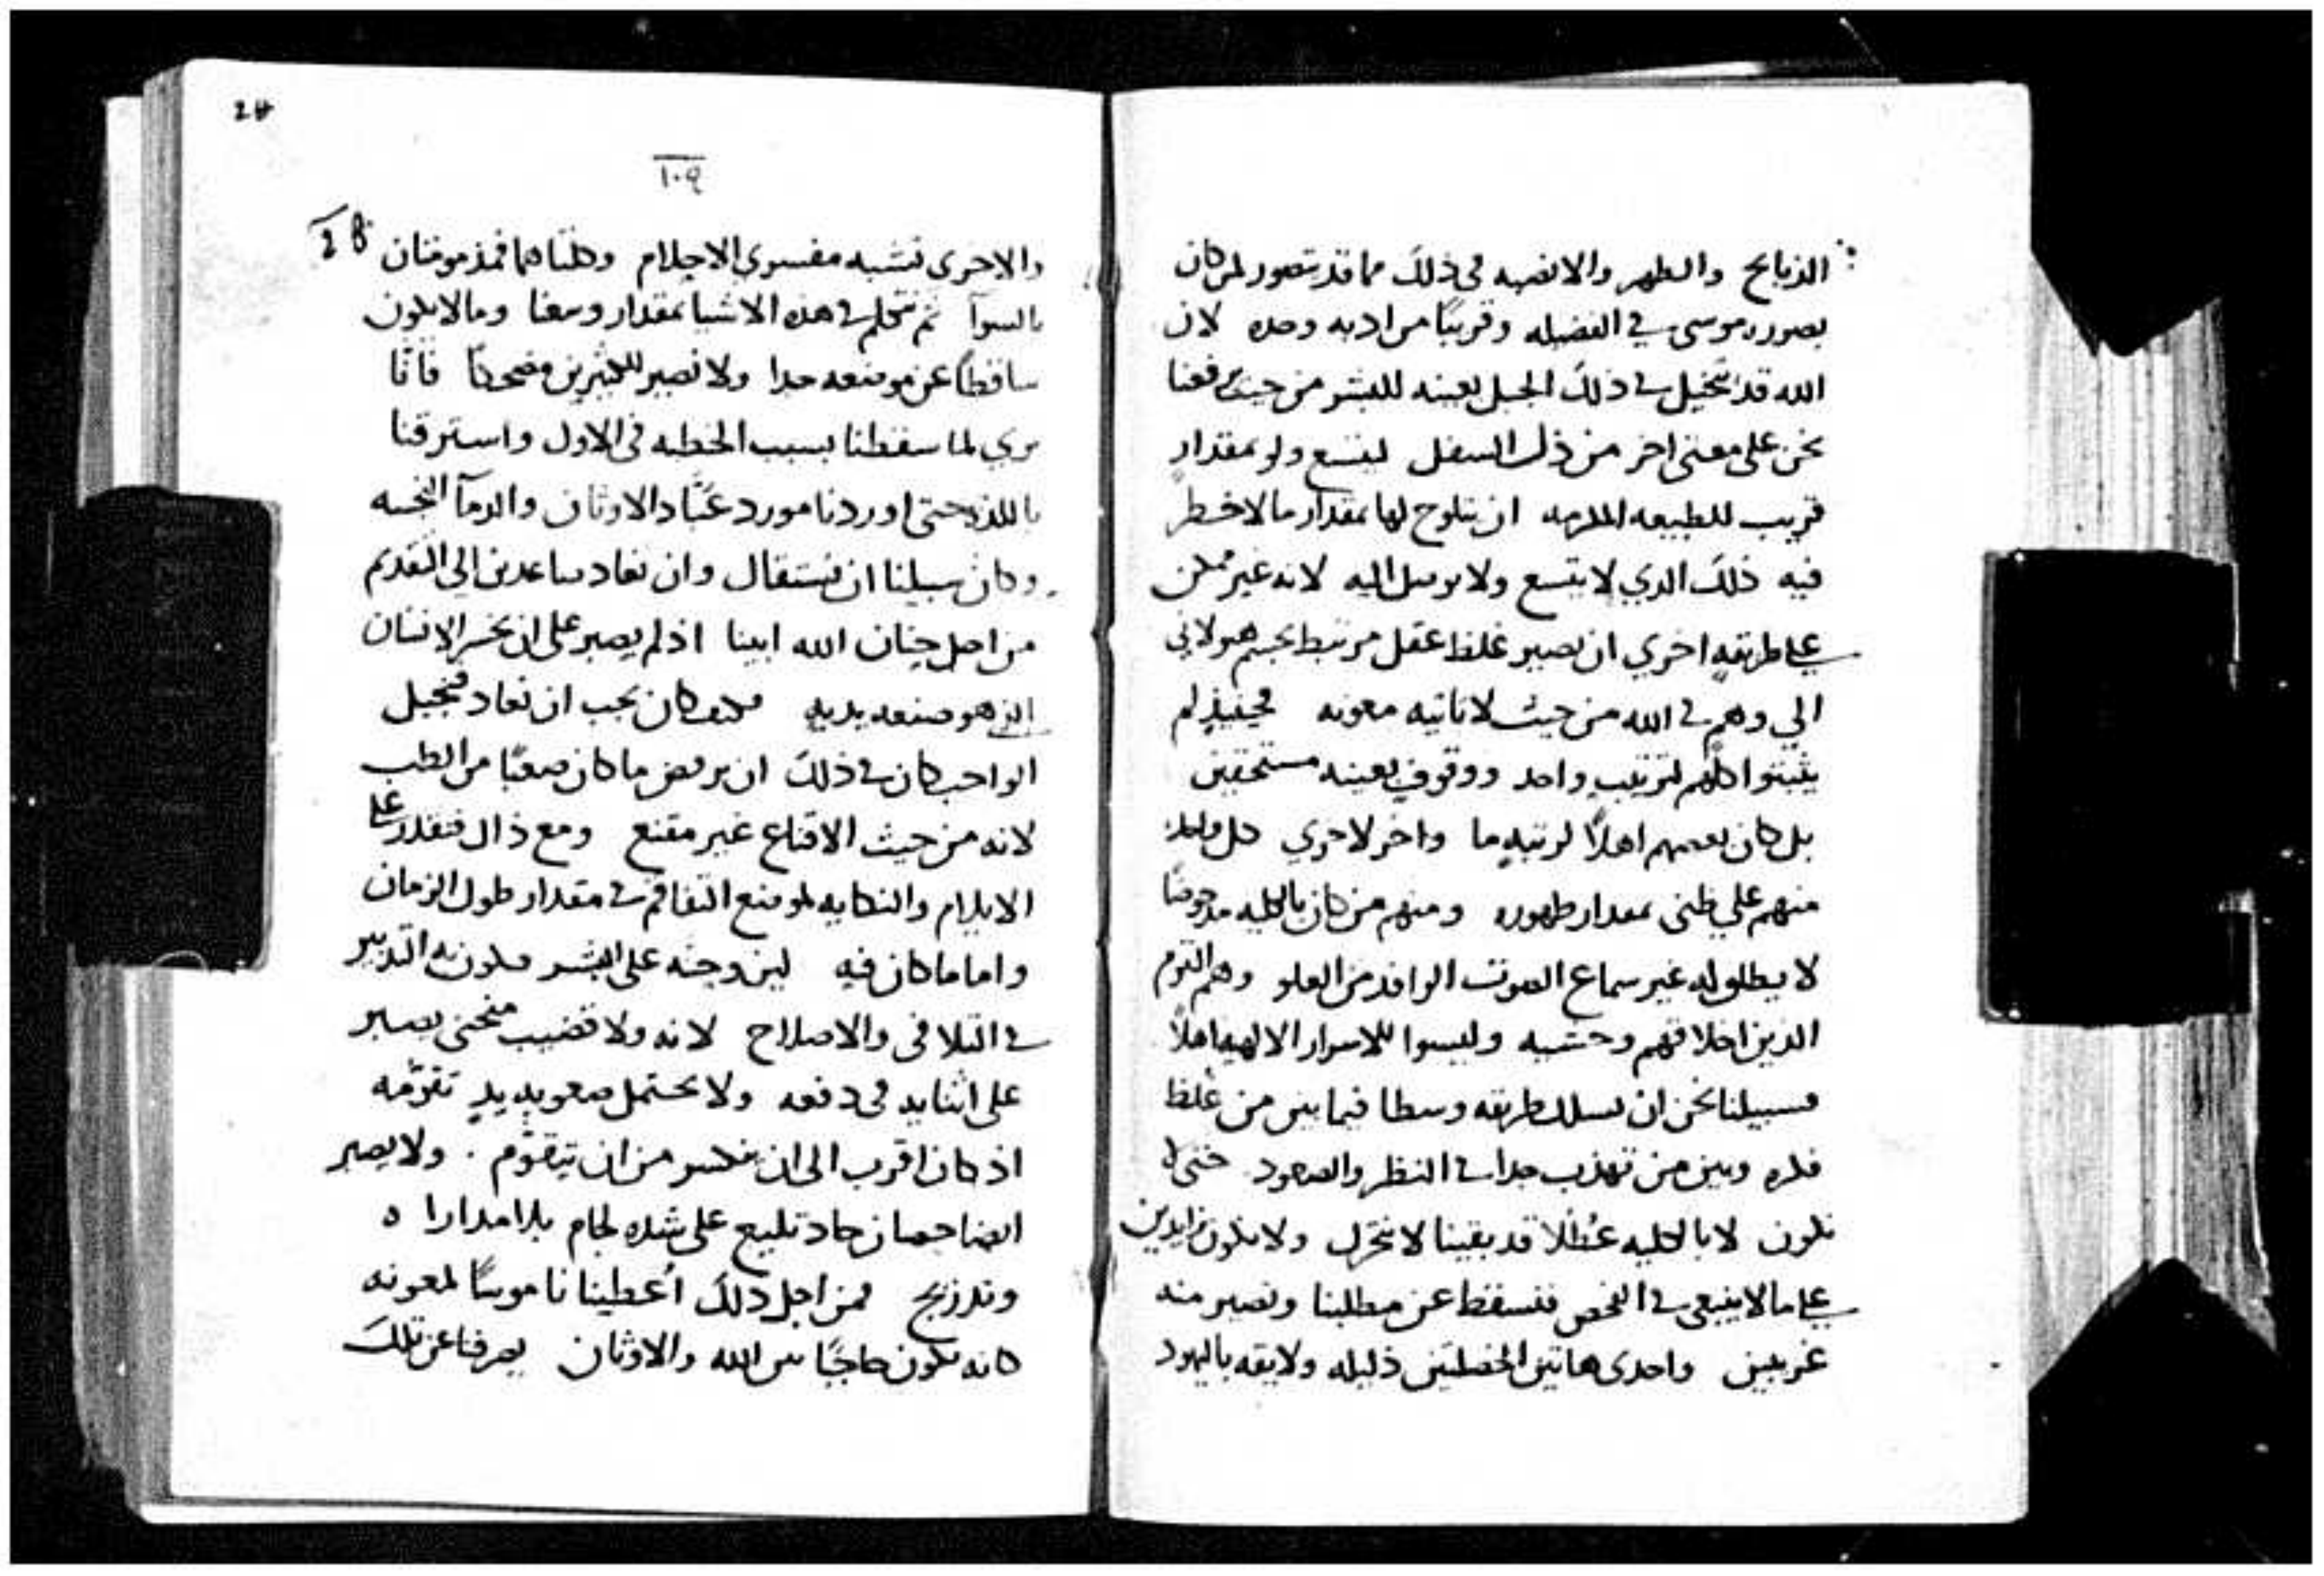 الذبايح والطهر والانضيه فى ذلك مما قد تتصور لمن كان
بصوره موسى في الفضيله وقريبًا من ادبه وحده لان
الله قد تخيل في ذلك الجبل بعينه للبشر من حيث رفعنا
نحن على معنى اخر من ذلك السفل ليتسع ولو بمقدارٍ
قريب للطبيعه الملزمه ان يتلوح لها بمقدار ما لا خطر
فيه ذلك الدي لا يتسع ولا يوصل اليه لانه غير ممكن
على طريقةٍ اخري ان يصير غلظ عقل مرتبط بجسم هيولاني
الي وهم في الله من حيث لا تاتيه معونه فحينيذٍ لم
يثبتوا كلهم لترتيب واحد ووقوفٍ بعينه مستحقين
بل كان بعضهم اهلاً لرتبهٍ ما واخر لاخري كل واحد
منهم علي ظنى بمقدار طهوره ومنهم من كان بالكليه مدحوضًا
لا يطلق له غير سماع الصوت الوافد من العلو وهم القوم
الدين اخلاقهم وحشيه وليسوا للاسرار الالهيه اهلاً
فسبيلنا نحن ان نسلك طريقه وسطا فيما بين من غلظ
فكره وبين من تهذب جدا في النظر والصعود حتى لا
نكون لا بالكليه عُطلاً قد بقينا لا نتحرك ولا نكون زايدين
على ما لا ينبغي في الفحص فنسقط عن مطلبنا ونصير منه
غريبين واحدى هاتين الخصلتين ذليله ولايقه باليهود
24
١٠٩
28
والاخرى تشبه مفسري الاحلام وكلتاهما فمذمومتان
بالسوآ ثم نتكلم في هذه الاشيا بمقدار وسعنا وما لا يكون
ساقطاً عن موضعه جدا ولا نصير للكثيرين مضحكاً فانا
نرى لما سقطنا بسبب الخطيه فى الاول واسترقنا
باللذه حتى اوردنا مورد عبّاد الاوثان والدمآ النجسه
وكان سبيلنا ان نستقال وان نعاد صاعدين الى القديم
من اجل حنان الله ابينا اذ لم يصبر على ان يخسر الانسان
الذي هو صنعه يديهِ فكيف كان يجب ان نعاد فنجبل
الواجب كان في ذلك ان يرفض ما كان صعبًا من الطب
لانه من حيث الاقناع غير مقنع ومع ذاك فيقدر على
الايلام والنكايه لموضع التفاقم في مقدار طول الزمان
واما ما كان فيه لين وجنّه على البشر فيكون به التدبير
في التلافى والاصلاح لانه ولا قضيب منحنى يصبر
على انثنايه فى دفعه ولا يحتمل صعوبه يدٍ تقوّمه
اذ كان اقرب الى ان ينكسر من ان يتقوّم . ولا يصبر
ايضا حصان حاد تليع على شده لجام بلا مدارا ه
وتدريج فمن اجل ذلك أُعطينا ناموسًا لمعونه
كانه يكون حاجبًا بين الله والاوثان يصرفنا عن تلك